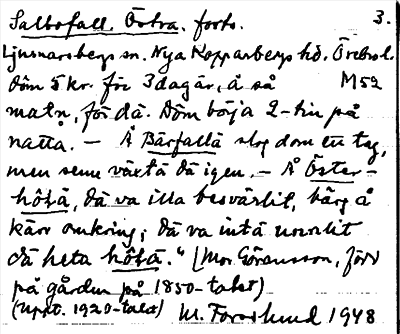 Saltofall, Östra, forts. 3.
Ljusnarsbergs sn. Nya Kopparbergs hd. Örebro l.
döm 5 kr. för 3 dagar, å så M 52
matn, för dä. Döm börja 2-tin på
natta. – Å Bärfallä slog dom ett tag,
men sene växtä dä igen. – Å Öster-
hötä, dä va illa besvärlit, bärg å
kärr omkring; dä va intä
dä heta hötä." (Mor Göransson, född
på gården på 1850-talet)
(Uppt. 1920-talet) M. Forslund 1948